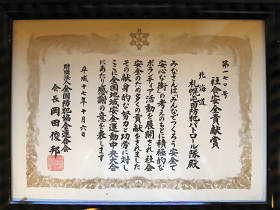 第一七〇号
社会安全貢献賞
北海道
札幌屯田防犯パトロール隊殿
みなさんは「みんなでつくろう安全で
安心な街」の考えのもとに積極的な
ボランティア活動を展開され社会
安全のため多くの貢献をされました
その献身的な努力と功労に対し
ここに全国地域安全運動中央大会
にあたり感謝の意を表します
平成十七年十月六日
財団法人全国防犯協会連合会
会長 岡田俊邦